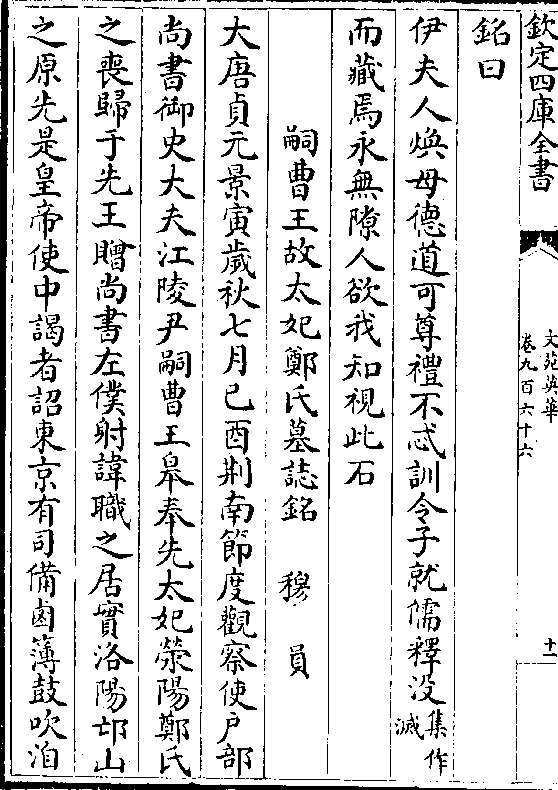 欽定四庫全書
文苑英華
卷九百六十六
十一
銘曰
伊夫人煥母德道可尊禮不忒訓令子就儒釋没集作滅
而藏焉永無隙人欲我知視此石
嗣曹王故太妃鄭氏墓誌銘 穆員
大唐貞元景寅歲秋七月己酉荆南節度觀察使户部
尚書御史大夫江陵尹嗣曹王皋奉先太妃滎陽鄭氏
之喪歸于先王贈尚書左僕射諱職之居實洛陽邙山
之原先是皇帝使中謁者詔東京有司備鹵簿鼓吹洎